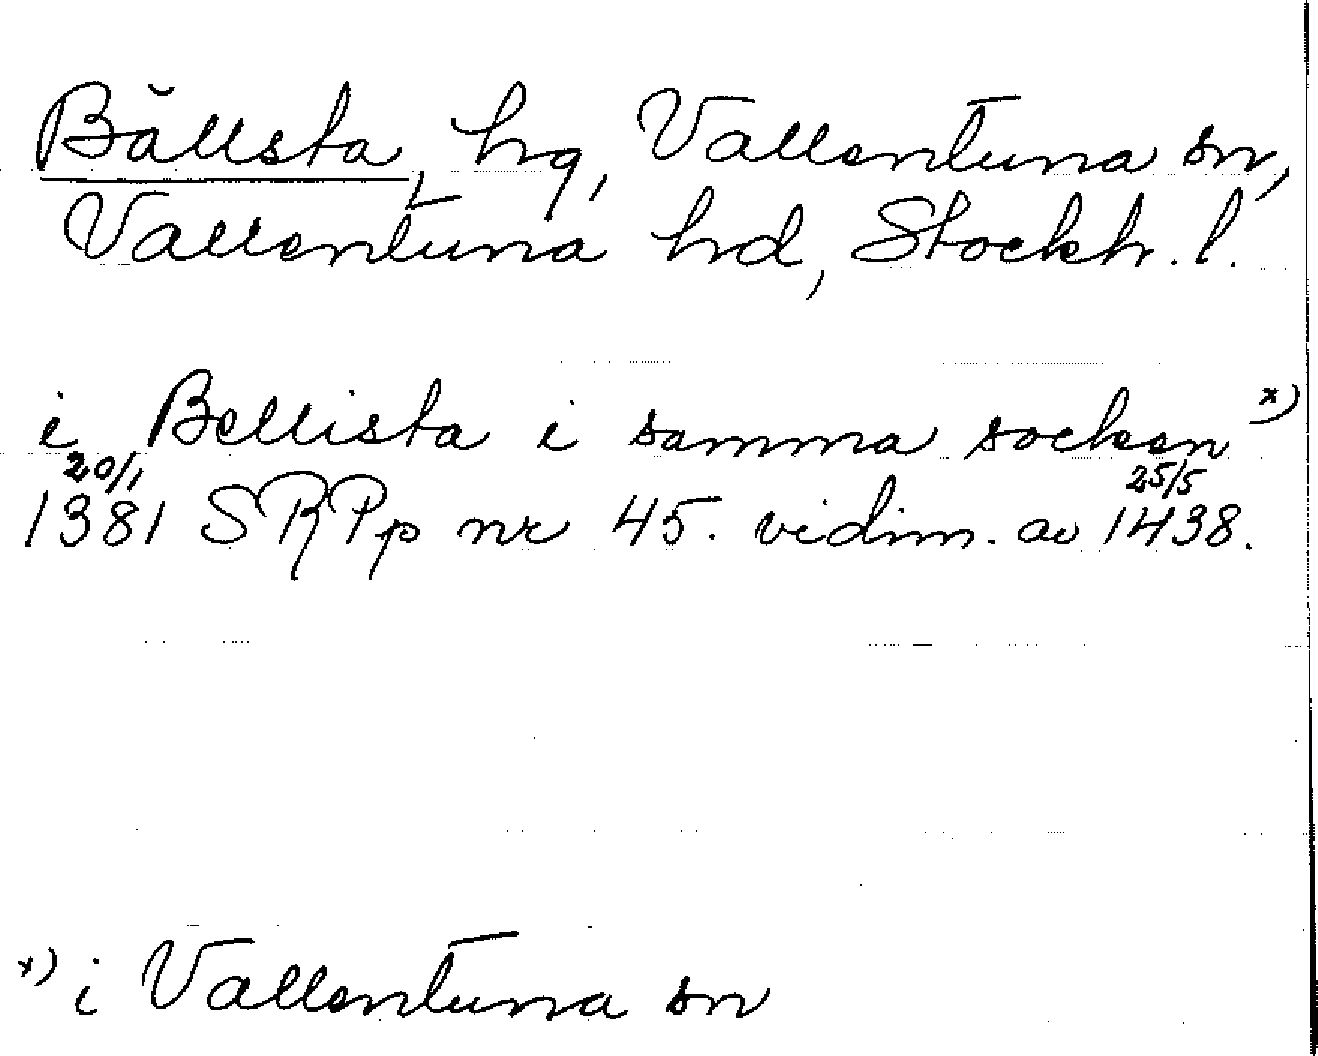 Bällsta, hg, Vallentuna sn,
Vallentuna hd, Stockh. l.
i Bellista i samma socken x)
20/1 1381 SRPp nr 45. vidim. av 25/5 1438.
x) i Vallentuna sn